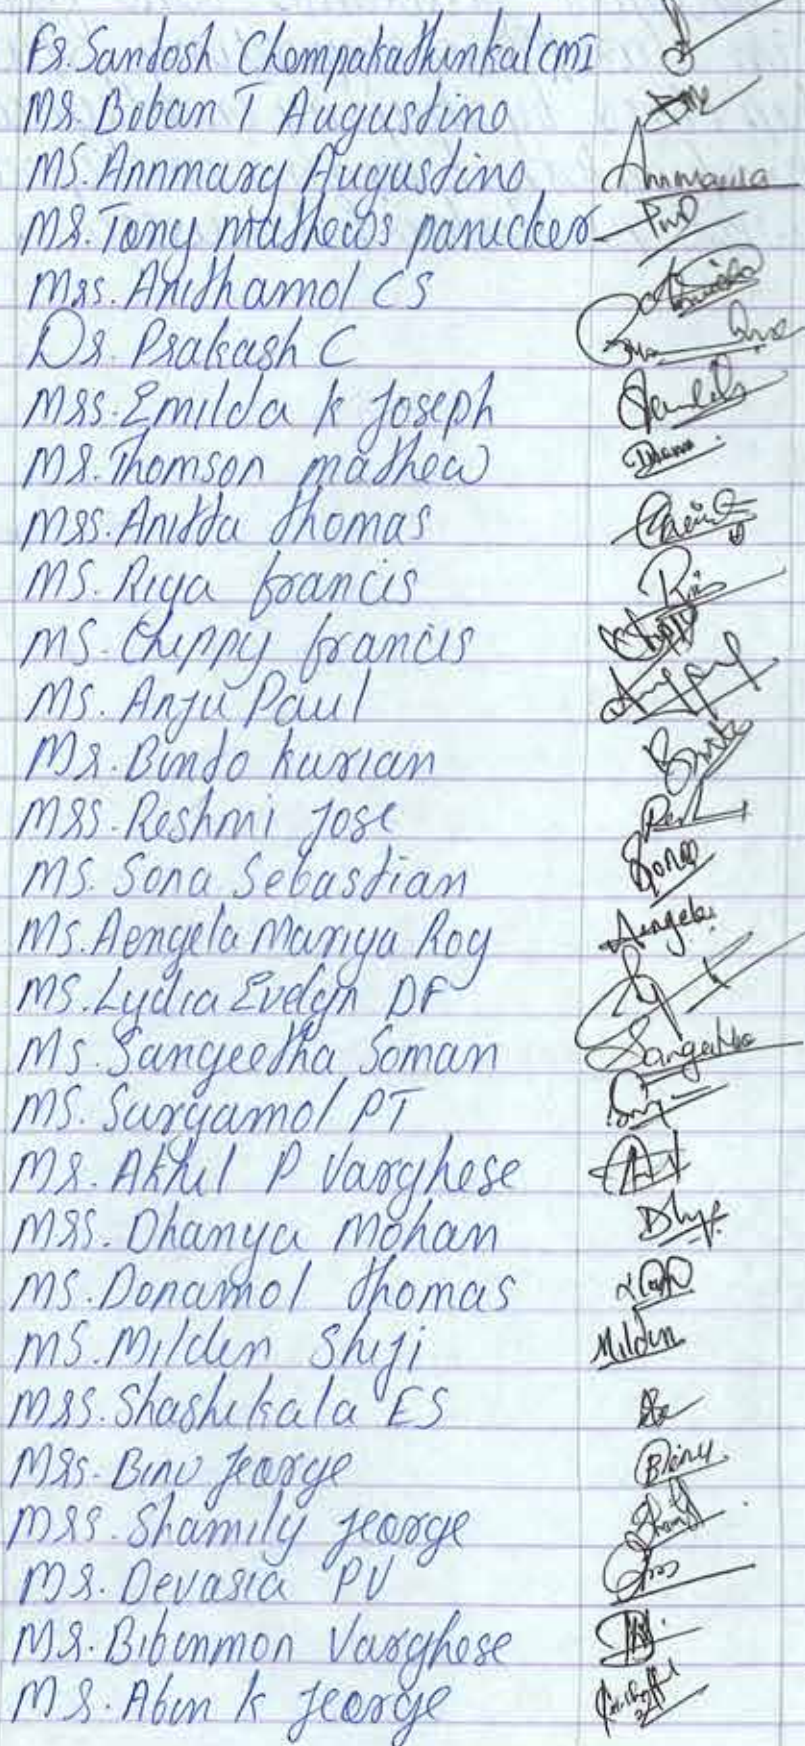 Fr. Santosh Chompakathinkal CMI
Mr. Boban T Augustino
Ms. Annmary Augustino Annmaria
Mr. Tomy Mathews Panicker
Mrs. Anithamol CS
Dr. Prakash C
Mrs. Emilda K Joseph
Mr. Thomson Mathew
Mrs. Anitta Thomas
Ms. Riya Francis
Ms. Chippy Francis
Ms. Anju Paul
Mr. Binto Kurian
Mrs. Reshmi Jose
Ms. Sona Sebastian Sona
Ms. Aengela Mariya Roy Aengela
Ms. Lydia Evelyn DF
Ms. Sangeetha Soman Sangeetha
Ms. Suryamol PT
Mr. Akhil P Varghese
Mrs. Dhanya Mohan
Ms. Donamol Thomas
Ms. Milden Shiji Milden
Mrs. Shashikala ES
Mrs. Binu Jearge
Mrs. Shamily Jearge
Mr. Devasia PV
Mr. Bibinmon Varghese
Mr. Abin K Jearge